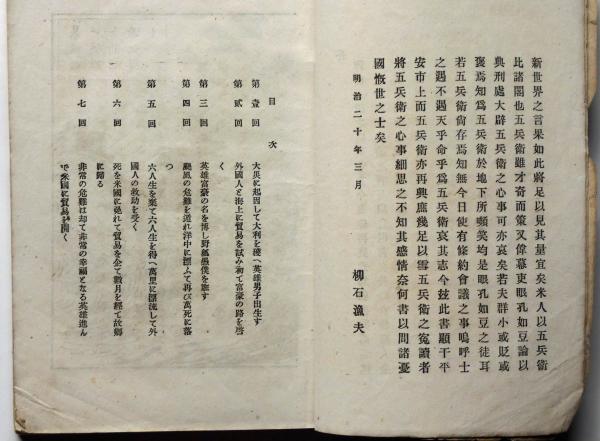 新世界之言果如此將足以見其量宜矣米人以五兵衛
比諸閣也五兵衛雖才奇而策又偉幕吏眼孔如豆論以
典刑處大辟五兵衛之心事可亦哀矣若夫群小或貶或
褒焉知爲五兵衛於地下所嚬笑均是眼孔如豆之徒耳
若五兵衛尙存焉知無今日使有條約會議之事嗚呼士
之遇不遇天乎命乎爲五兵衛哀其志今玆此書顯于平
安市上而五兵衛亦再興庶幾足以雪五兵衛之寃讀者
將五兵衛之心事細思之不知其感情奈何書以問諸憂
國慨世之士矣
明治二十年三月
柳石漁夫
目次
第壹回 大災に起因して大利を獲へ英雄男子出生す
第貳回 外國人と海上に貿易を試み初て富豪の路を啓
く
第三回 英雄富豪の名を博し野鄙愚僕を蓙す
第四回 颶風の危難を遁れ洋中に漂ふて再び萬死に落
つ
第五回 六人生を棄て六人生を得へ萬里に漂流して外
國人の救助を受く
第六回 死を米國に免れて貿易を企て數月を經て故鄉
に歸る
第七回 非常の危難は却て非常の幸福となる英雄進ん
で米國に貿易を開く